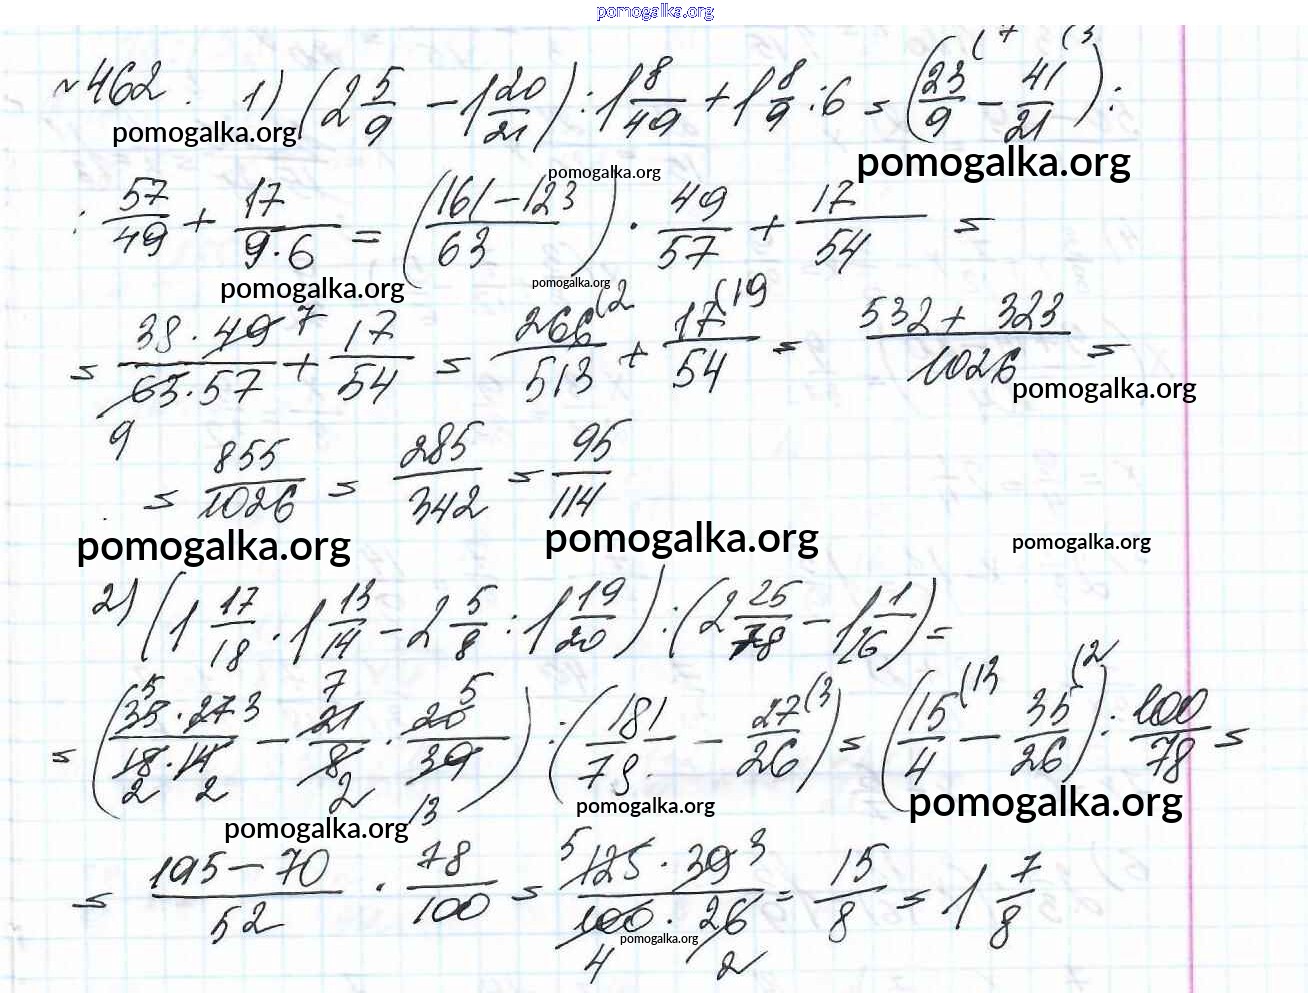 pomogalka.org
№462. 1) (2 5/9 − 1 20/21) : 1 8/49 + 1 8/9 : 6 = (23/9 (7 − 41/21 (3) :
pomogalka.org pomogalka.org
pomogalka.org
: 57/49 + 17/(9·6) = ((161−123)/63) · 49/57 + 17/54 =
pomogalka.org pomogalka.org
= (38 · 49 7)/(63·57 9) + 17/54 = 266/513 (2 + 17/54 (19 = (532 + 323)/1026 =
pomogalka.org
= 855/1026 = 285/342 = 95/114
pomogalka.org pomogalka.org pomogalka.org
2) (1 17/18 · 1 13/14 − 2 5/8 : 1 19/20) : (2 25/78 − 1 1/26) =
= ((35 5 · 27 3)/(18 2 · 14 2) − 21 7/8 2 · 20 5/39 13) : (181/78 − 27/26 (3) = (15/4 (13 − 35/26 (2) : 100/78 =
pomogalka.org pomogalka.org pomogalka.org
= (195 − 70)/52 · 78/100 = (5 125 · 39 3)/(100 4 · 26 2) = 15/8 = 1 7/8
pomogalka.org